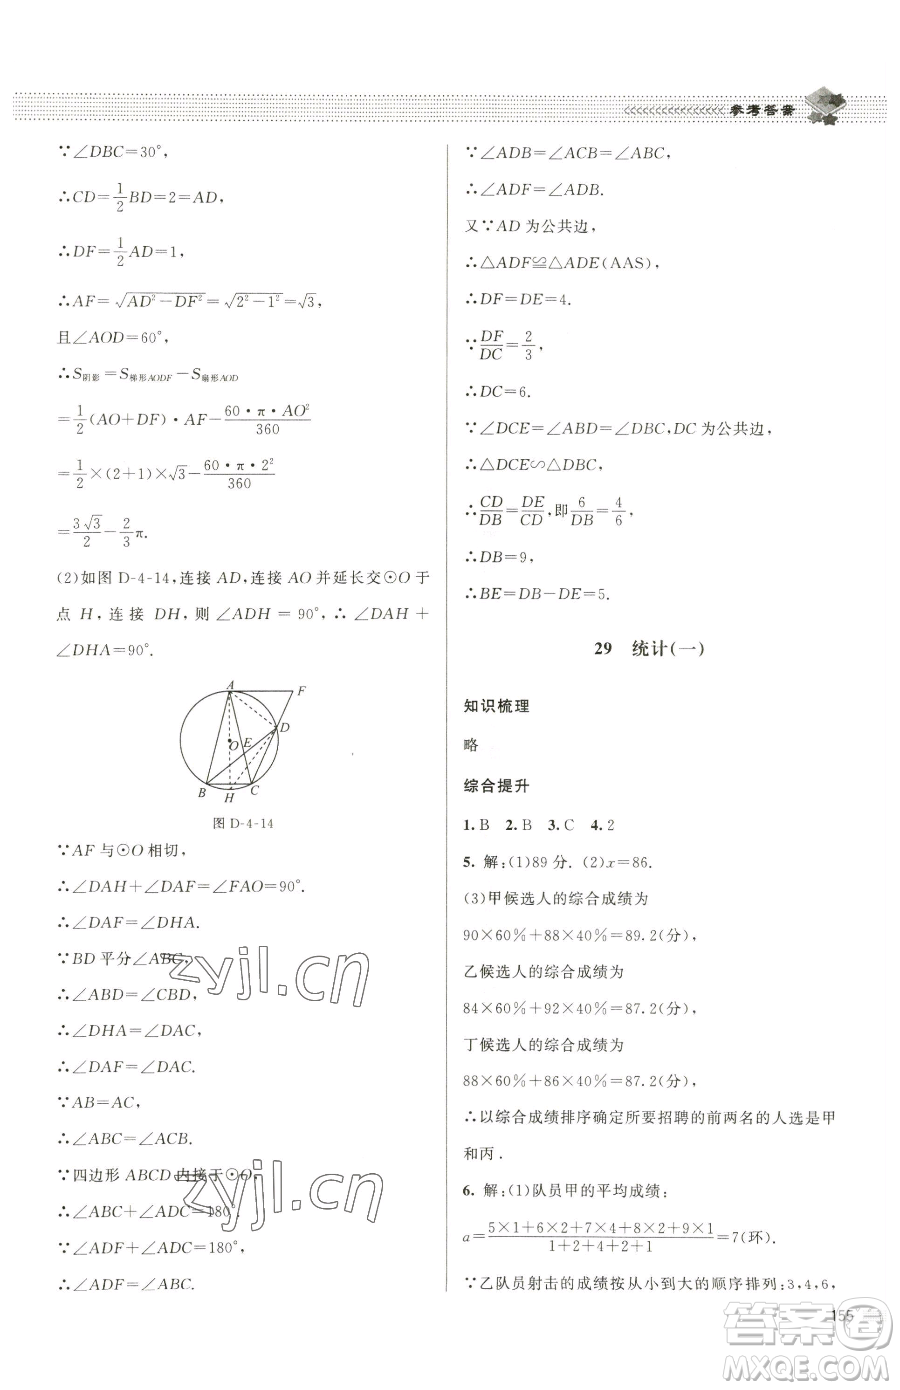 参考答案
∵∠DBC=30°,
∴CD=1/2BD=2=AD,
∴DF=1/2AD=1,
∴AF=√(AD²-DF²)=√(2²-1²)=√3,
且∠AOD=60°,
∴S阴影=S梯形AODF-S扇形AOD
=1/2(AO+DF)·AF-60·π·AO²/360
=1/2×(2+1)×√3-60·π·2²/360
=3√3/2-2/3π.
(2)如图 D-4-14,连接 AD,连接 AO 并延长交⊙O 于
点 H,连接 DH,则∠ADH=90°,∴∠DAH+
∠DHA=90°.
A
F
D
E
O
B
H
C
图 D-4-14
∵AF 与⊙O 相切,
∴∠DAH+∠DAF=∠FAO=90°.
∴∠DAF=∠DHA.
∵BD 平分∠ABC,
∴∠ABD=∠CBD,
∴∠DHA=∠DAC,
∴∠DAF=∠DAC.
∵AB=AC,
∴∠ABC=∠ACB.
∵四边形 ABCD 内接于⊙O,
∴∠ABC+∠ADC=180°.
∵∠ADF+∠ADC=180°,
∴∠ADF=∠ABC.
∵∠ADB=∠ACB=∠ABC,
∴∠ADF=∠ADB.
又∵AD 为公共边,
∴△ADF≌△ADE(AAS),
∴DF=DE=4.
∵DF/DC=2/3,
∴DC=6.
∵∠DCE=∠ABD=∠DBC,DC 为公共边,
∴△DCE∽△DBC.
∴CD/DB=DE/CD,即6/DB=4/6,
∴DB=9,
∴BE=DB-DE=5.
29 统计(一)
知识梳理
略
综合提升
1.B 2.B 3.C 4.2
5. 解:(1)89 分. (2)x=86.
(3)甲候选人的综合成绩为
90×60%+88×40%=89.2(分),
乙候选人的综合成绩为
84×60%+92×40%=87.2(分),
丁候选人的综合成绩为
88×60%+86×40%=87.2(分),
∴以综合成绩排序确定所要招聘的前两名的人选是甲
和丙.
6. 解:(1)队员甲的平均成绩:
a=(5×1+6×2+7×4+8×2+9×1)/(1+2+4+2+1)=7(环).
∵乙队员射击的成绩按从小到大的顺序排列:3,4,6,
155
zyjl.cn
zyjl.cn
答案圈
MXQE.COM